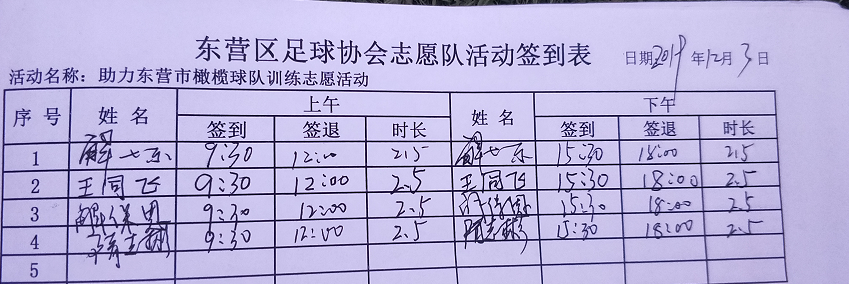 东营区足球协会志愿队活动签到表
日期2019年12月3日
活动名称：助力东营市橄榄球队训练志愿活动
序号 姓名 上午 姓名 下午
签到 签退 时长 签到 签退 时长
1 9:30 12:00 2.5 15:30 18:00 2.5
2 王同飞 9:30 12:00 2.5 王同飞 15:30 18:00 2.5
3 9:30 12:00 2.5 15:30 18:00 2.5
4 9:30 12:00 2.5 15:30 18:00 2.5
5